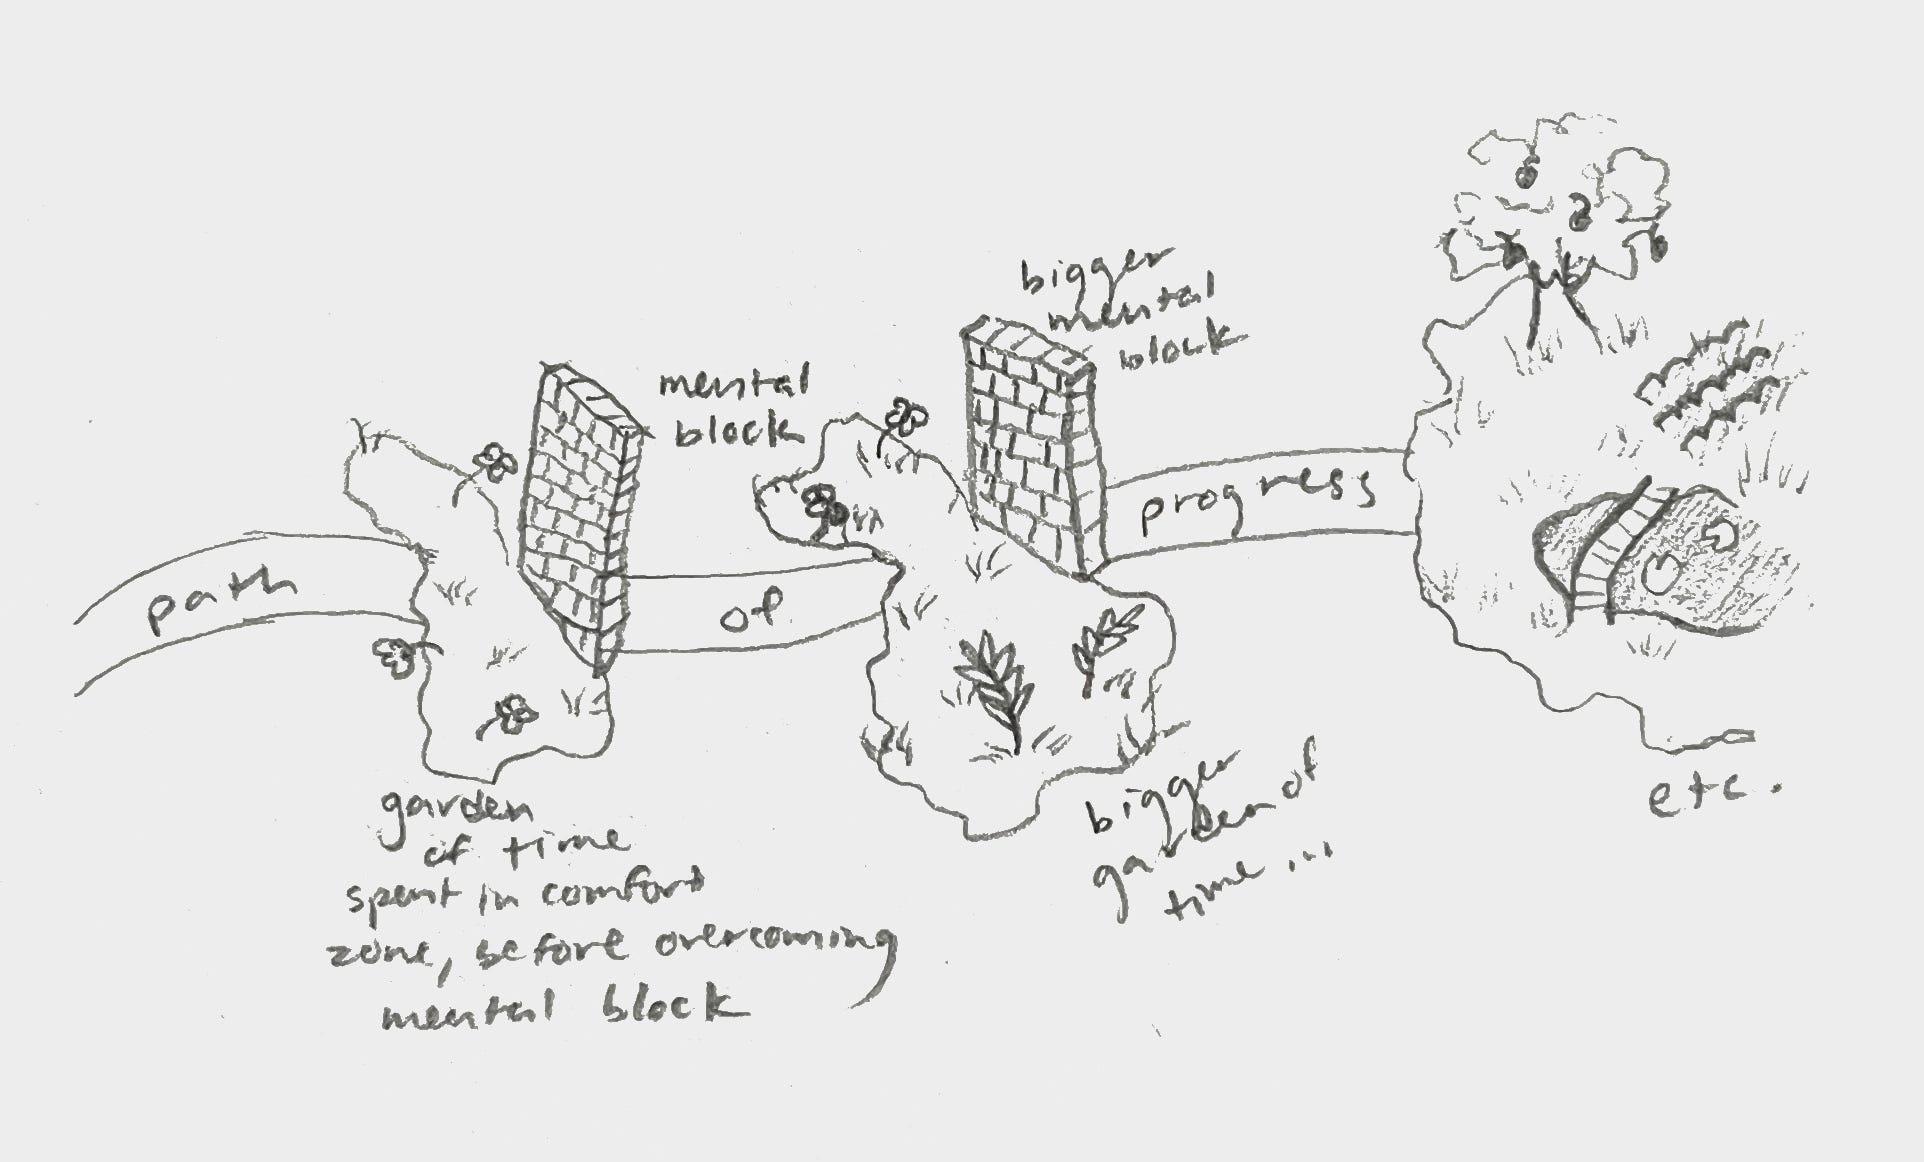 path
of
progress
mental
block
bigger
mental
block
garden
of time
spent in comfort
zone, before overcoming
mental block
bigger
garden of
time ...
etc.